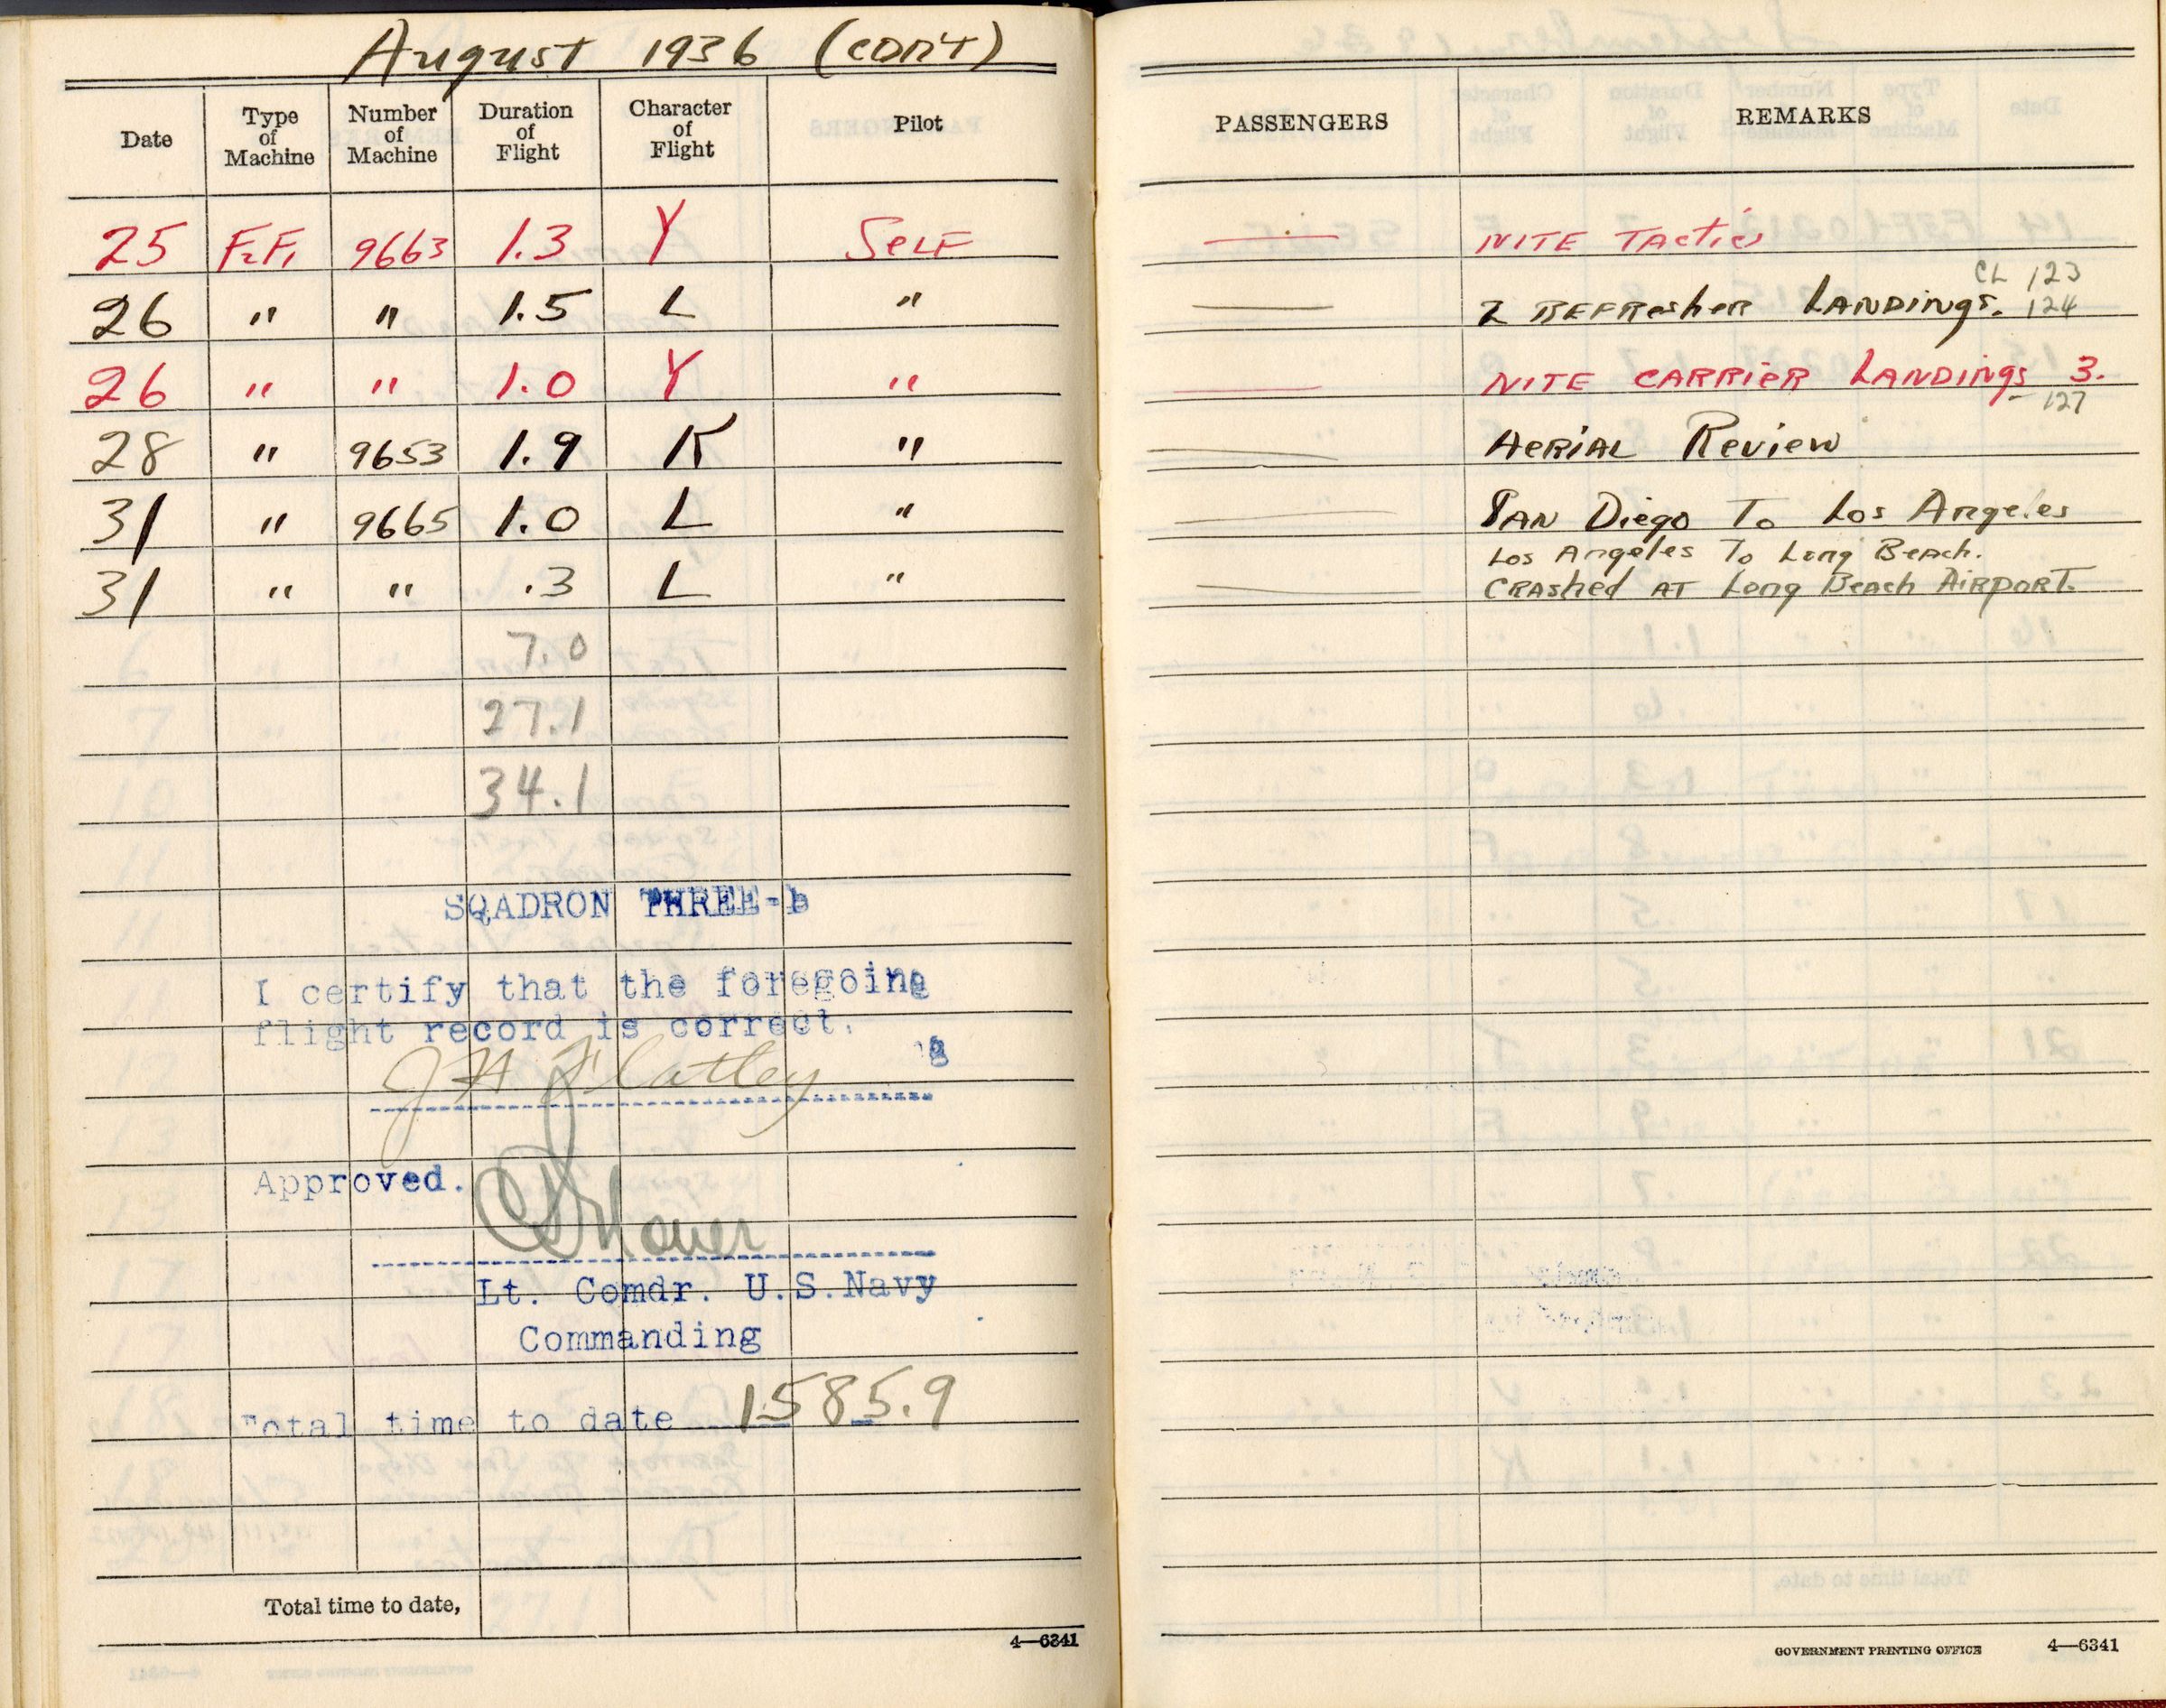 August 1936 (con't)
Date Type of Machine Number of Machine Duration of Flight Character of Flight Pilot PASSENGERS REMARKS
25 F2F1 9663 1.3 Y SELF — NITE TACTICS
CL 123
26 " " 1.5 L " — 2 REFResheR LANDINGS. 124
26 " " 1.0 Y " — NITE CARRIER LANDINGS 3.
- 127
28 " 9653 1.9 K " — AERIAL Review
31 " 9665 1.0 L " — SAN Diego To Los Angeles
Los Angeles To Long Beach.
31 " " .3 L " — CRAshed AT Long Beach AIRPORT.
7.0
27.1
34.1
SQADRON THREE-b
I certify that the foregoing
flight record is correct.
g
J H Flatley
Approved.
Lt. Comdr. U.S.Navy
Commanding
Total time to date 1585.9
Total time to date,
4—6341
GOVERNMENT PRINTING OFFICE 4—6341